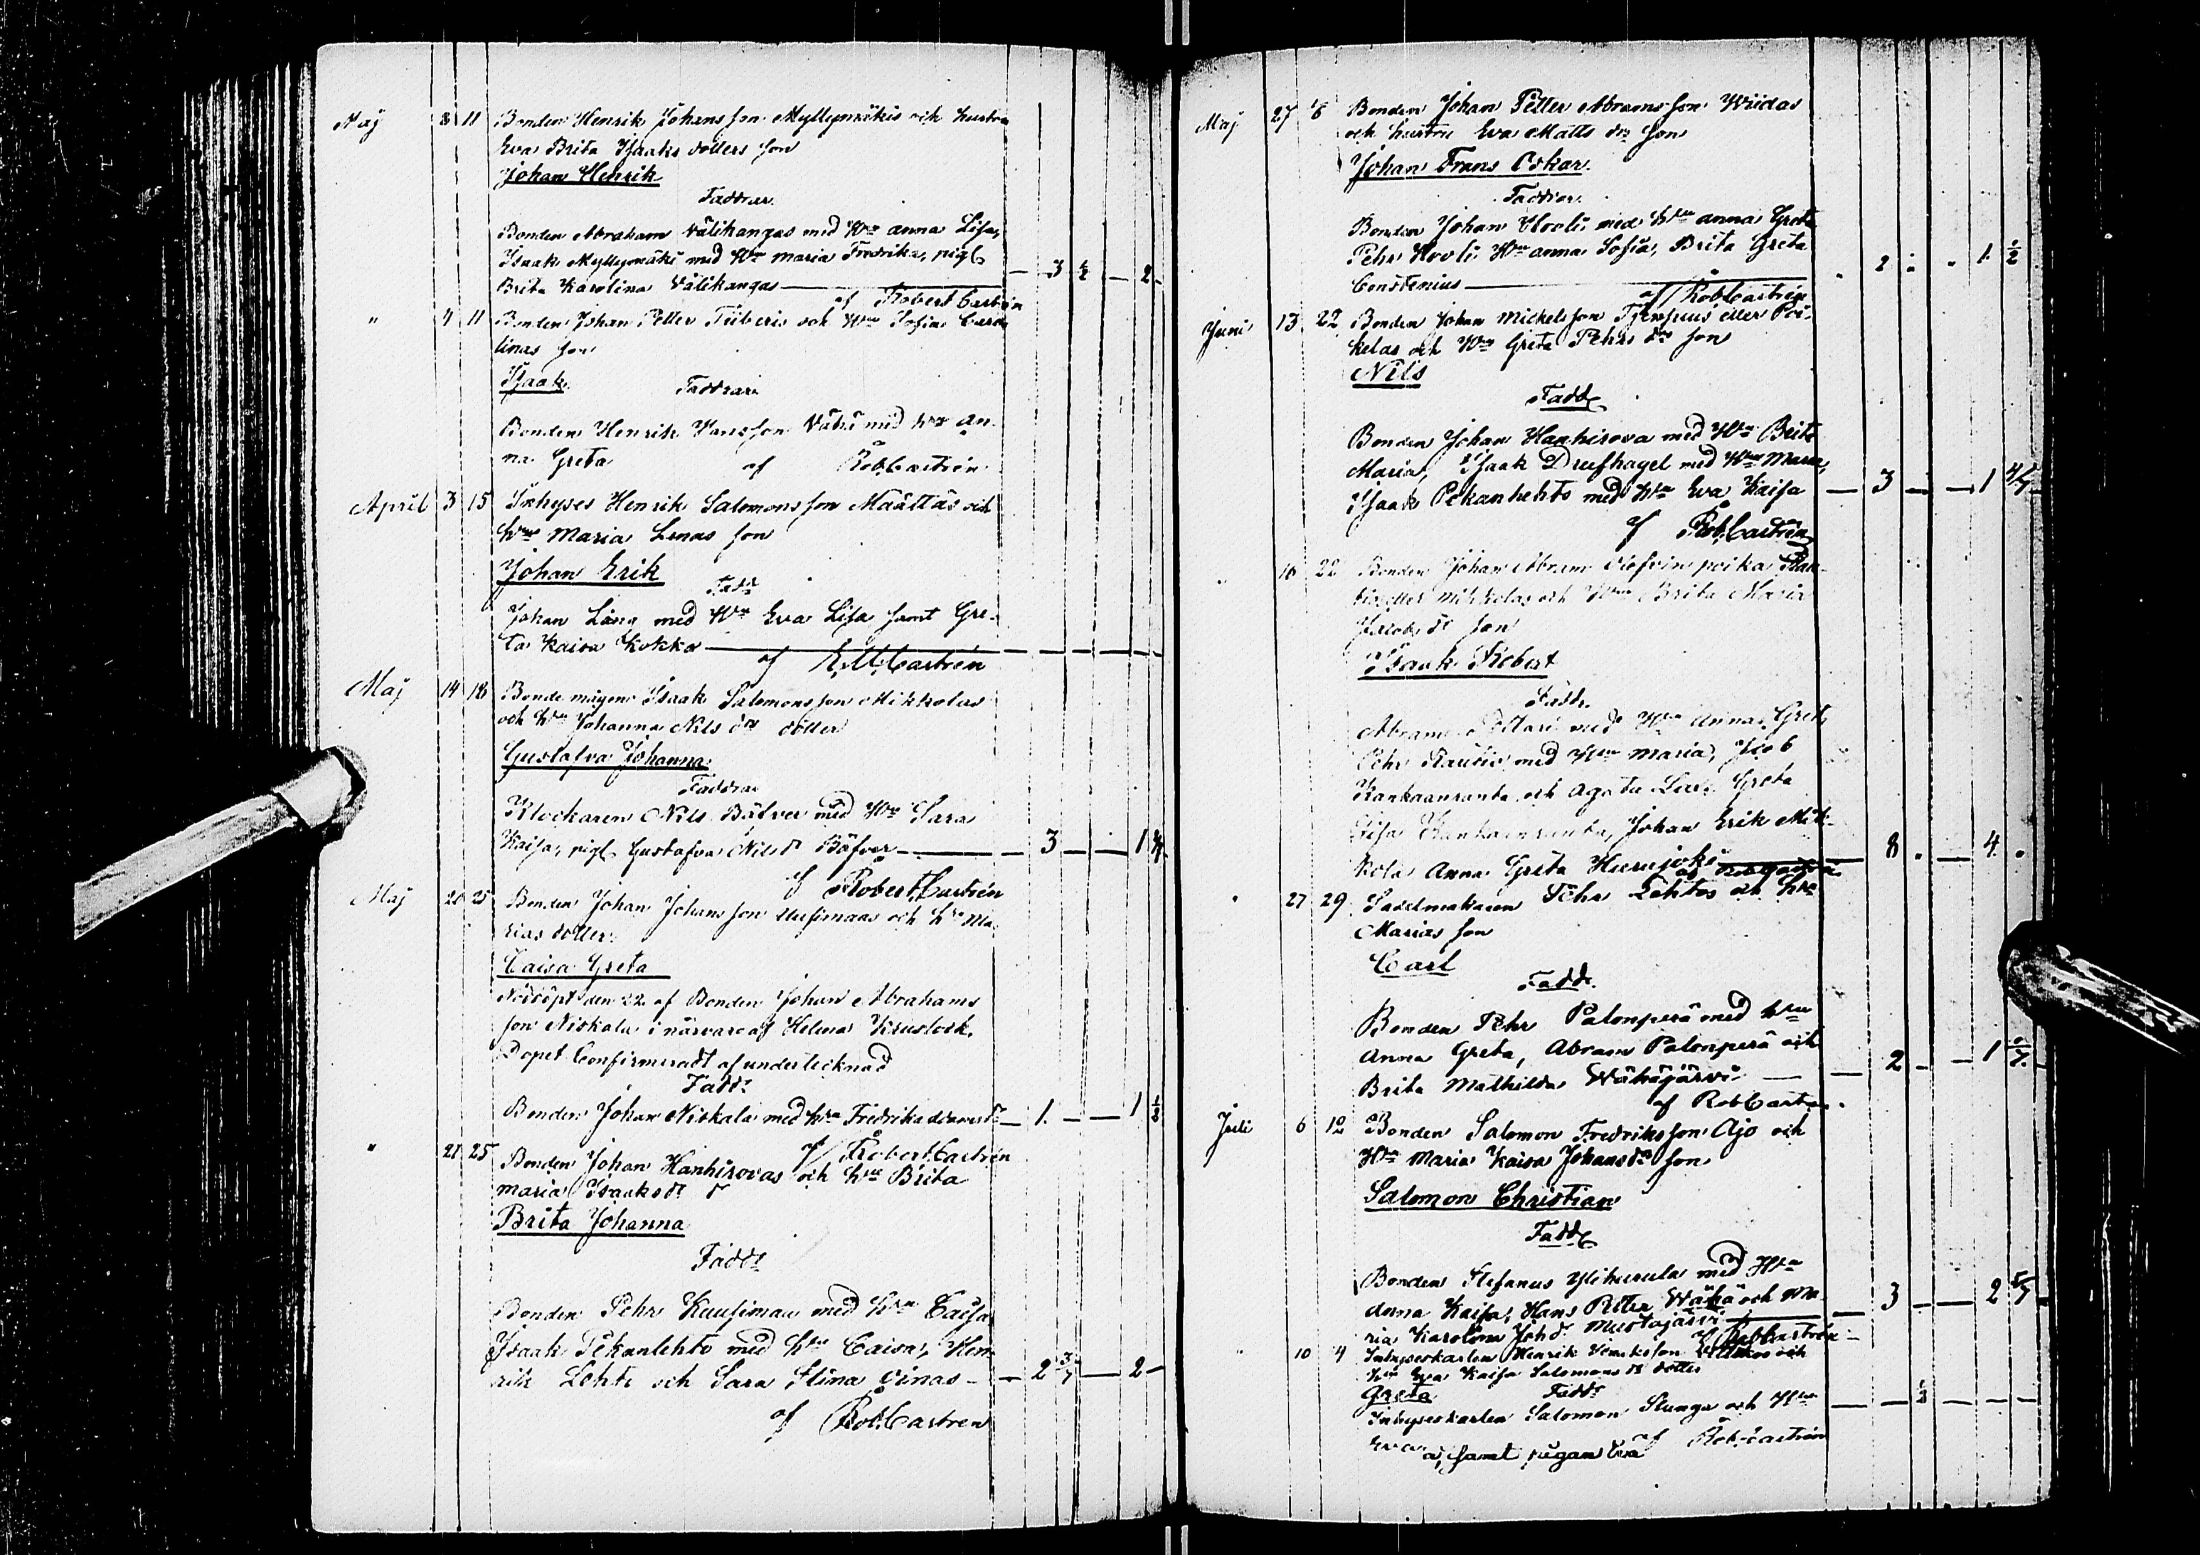 Maj 3 11 Bonden Henrik Johansson Myllymäkis och hustru
Eva Brita Isaaks dotters son
Johan Henrik
Faddrar
Bonden Abraham Välikangas med Hru Anna Lisa,
Isaak Myllymäki med Hru Maria Fredrika, pig.
Brita Karolina Välikangas — 3 ½ — 2
af Robert Castrén
" 4 11 Bonden Johan Petter Tiiberis och Hru Sofia Caro
linas son
Isaak
Faddrar
Bonden Henrik Hansson Vähä med hru An
na Greta
af Rob. Castrén
April 3 15 Inhyses Henrik Salomonsson Määttäs och
hru Maria Lenas son
Johan Erik
Fadr
Johan Lång med Hru Eva Lisa samt Gre-
ta Kaisa Kokko
af E. M. Castrén
Maj 14 18 Bonde mågen Isaak Salomonsson Mikkolas
och hru Johanna Nils dr dotter
Gustafva Johanna
Faddrar
Klockaren Nils Bäfver med Hru Sara
Kaisa, pig. Gustafva Nilsdr Bäfver — 3 — 1 ¼
af Robert Castrén
Maj 20 25 Bonden Johan Johansson Uusimaas och hru Ma
rias dotter
Caisa Greta
Nöddöpt den 22 af Bonden Johan Abrahams
son Niskala i närvaro af Helena Kruslock.
Dopet Confirmeradt af undertecknad
Fadd:
Bonden Johan Niskala med hru Fredrika — 1 — 1
af Robert Castrén
" 21 25 Bonden Johan Hanhirovas och hru Brita
Maria Isaaksdr d
Brita Johanna
Faddr
Bonden Pehr Kuusimaa med hru Caisa,
Isaak Pekanlehto med hru Caisa, Hen
rik Lehto och Sara Stina — 2 3/4 — 2
af Rob. Castren
Maj 27 8 Bonden Johan Petter Abramsson Wiidas
och hustru Eva Matts dr son
Johan Frans Oskar.
Faddrar
Bonden Johan med hru Anna Greta
Pehr Hru Anna Sofia, Brita Greta
Constenius — 2 1 ½
af Rob Castrén
Juni 13 22 Bonden Johan Mickelsson eller Poi-
kelas och Hru Greta Pehrs dr son
Nils
Fadd.
Bonden Johan Hanhirova med Hru Brita
Maria, Isaak Drufhagel med Hru Maria,
Isaak Pekanlehto med Hru Eva Kaisa — 3 — 1
af Rob Castrén
16 22 Bonden Johan Abram
eller Mikkolas och Hru Brita Maria
Jakobs dr son
Isaak Robert
Faddr.
Abram med Hru Anna Greta
Pehr Rautio med Hru Maria, Jacob
Kankaanranta och Agata Greta
Lisa Kankaanranta, Johan Erik Mik-
kola Anna Greta — 8 — 4
27 29 Sadelmakaren Pehr Lehtos och hru
Marias son
Carl
Fadd.
Bonden Pehr Palonperä med hru
Anna Greta, Abram Palonperä och
Brita Mathilda Wähäjärvi — 2 — 1
af Rob Castren
Juli 6 12 Bonden Salomon Fredriksson Ajo och
Hru Maria Kaisa Johansdr son
Salomon Christian
Fadd.
Bonden Stefanus Ylihurula med Hru
Anna Kaisa, Hans Petter Wähä och Ma
ria Karolina Johdr Mustajärvi — 3 — 2
af Rob Castrén
10 4 Inhyseskarlen Henrik Henriksson och
hru Eva Kaisa Salomons dr dotter
Greta Faddr
Inhyseskarlen Salomon Slunga och Hru
af Rob. Castrén
samt pigan Eva